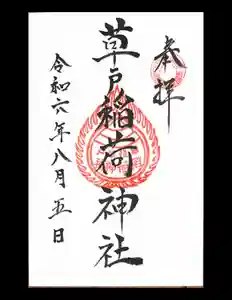 奉拝
草戸稲荷神社
令和六年八月五日